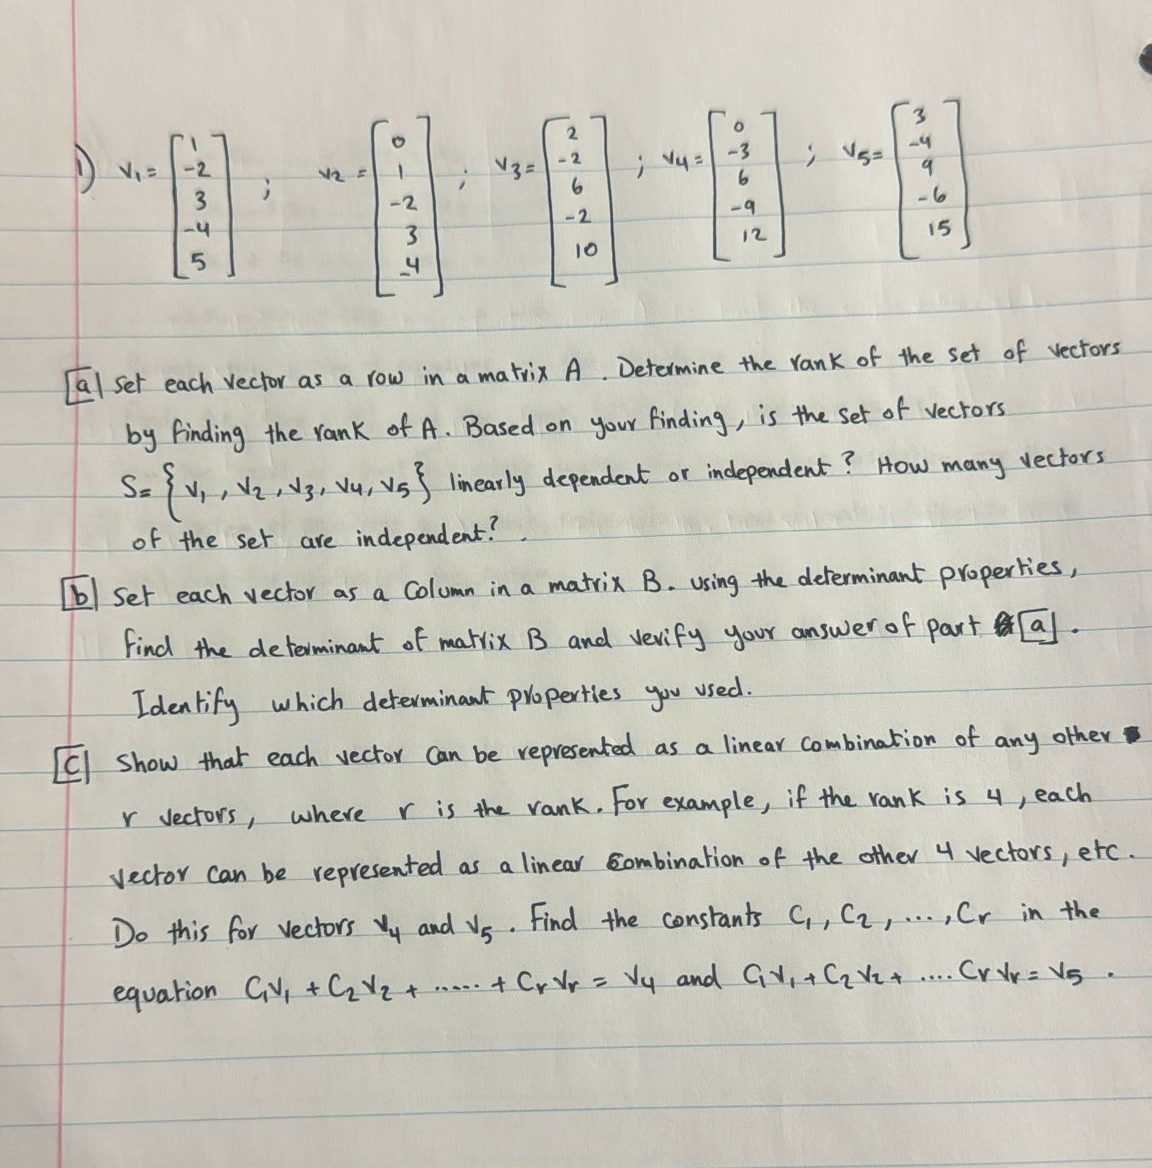 1) V₁ = [1 -2 3 -4 5] ; V₂ = [0 1 -2 3 -4] ; V₃ = [2 -2 6 -2 10] ; V₄ = [0 -3 6 -9 12] ; V₅ = [3 -4 9 -6 15]
[a] Set each vector as a row in a matrix A. Determine the rank of the set of vectors
by finding the rank of A. Based on your finding, is the set of vectors
S = { V₁, V₂, V₃, V₄, V₅ } linearly dependent or independent? How many vectors
of the set are independent?.
[b] Set each vector as a Column in a matrix B. using the determinant properties,
find the determinant of matrix B and verify your answer of part [a].
Identify which determinant properties you used.
[c] Show that each vector can be represented as a linear combination of any other
r vectors, where r is the rank. For example, if the rank is 4, each
vector can be represented as a linear combination of the other 4 vectors, etc.
Do this for vectors V₄ and V₅. Find the constants C₁, C₂, ..., Cr in the
equation C₁V₁ + C₂V₂ + ..... + CrVr = V₄ and C₁V₁ + C₂V₂ + .... CrVr = V₅.